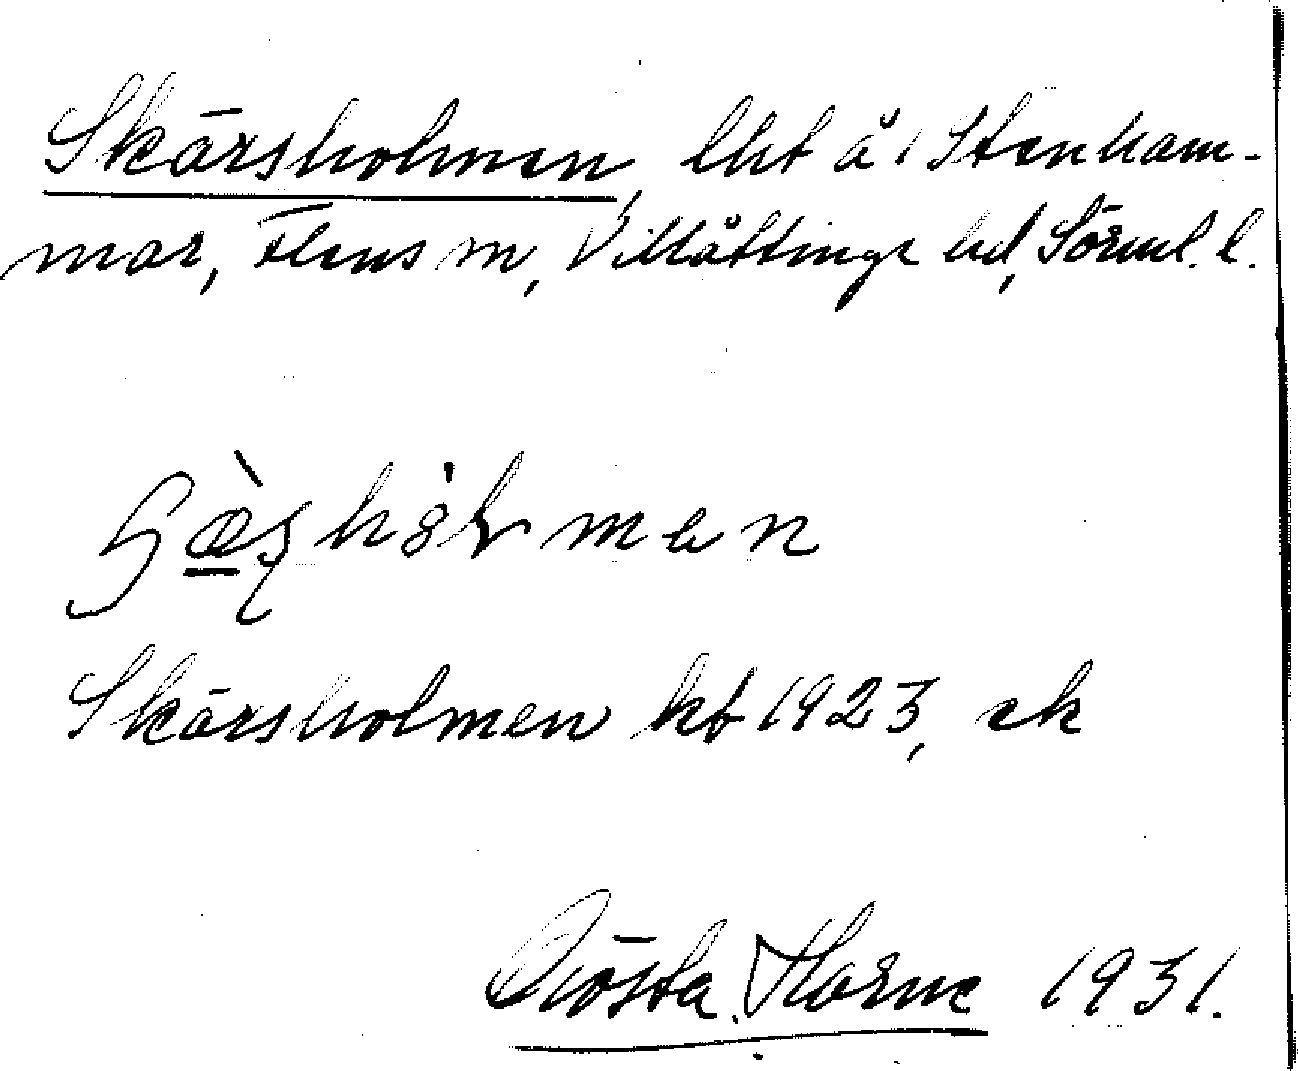 Skärsholmen, lht å 1 Stenham-
mar, Flens sn, Villåttinge hd, Sörml. l.
hålmen
Skärsholmen kb 1923, ek
Gösta Horne 1931.